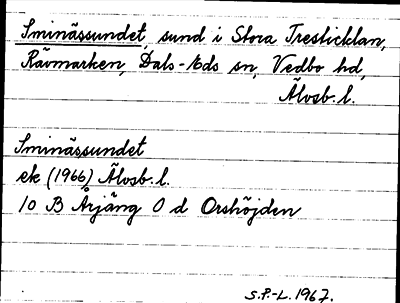 Sminässundet, sund i Stora Tresticklan,
Rävmarken, Dals-Eds sn, Vedbo hd,
Älvsb. l.
Sminässundet
ek (1966) Älvsb. l.
10 B Årjäng 0 d Orshöjden
S.P.-L. 1967.